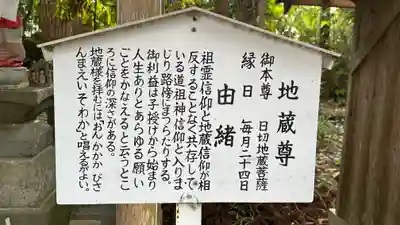 地蔵尊
御本尊 日切地蔵菩薩
縁日 毎月二十四日
由緒
祖霊信仰と地蔵信仰が相
反することなく共存して
いる道祖神信仰と入りま
じり路傍にまつられたりする。
御利益は子授けから始まり
人生ありとあらゆる願い
ごとをかなえると云うとこ
ろに信仰の深さがある。
地蔵様を拝むには「おんかかか びさ
んまえい そわか」と唱えるがよい。